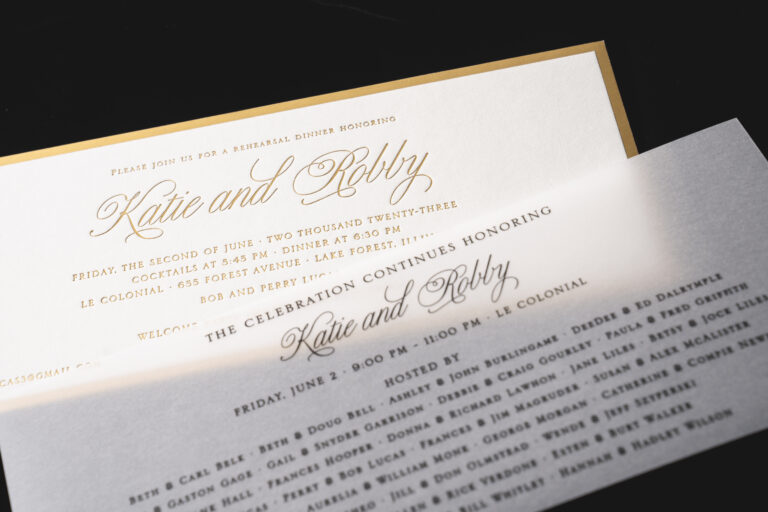 PLEASE JOIN US FOR A REHEARSAL DINNER HONORING
Katie and Robby
FRIDAY, THE SECOND OF JUNE · TWO THOUSAND TWENTY-THREE
COCKTAILS AT 5:45 PM · DINNER AT 6:30 PM
LE COLONIAL · 655 FOREST AVENUE · LAKE FOREST,
BOB AND PERRY
WELCOME
CAS3@GMAIL.COM
THE CELEBRATION CONTINUES HONORING
Katie and Robby
FRIDAY, JUNE 2 · 9:00 PM - 11:00 PM · LE COLONIAL
HOSTED BY
BETH & CARL BELK · BETH & DOUG BELL · ASHLEY & JOHN BURLINGAME · DEEDEE & ED DALRYMPLE
& GASTON GAGE · GAIL & SNYDER GARRISON · DEBBIE & CRAIG GOURLEY · PAULA & FRED GRIFFITH
HALL · FRANCES HOOPER · DONNA & RICHARD LAWHON · JANE LILES · BETSY & JOCK LILES
· PERRY & BOB LUCAS · FRANCES & JIM MAGRUDER · SUSAN & ALEX MCALISTER
AURELIA & WILLIAM MONK · GEORGE MORGAN · CATHERINE & COMPIE
· JILL & DON OLMSTRAD · WENDE & JEFF SZYPERSKI
& RICK VERDONE · ESTEN & BURT WALKER
& BILL WHITLEY · HANNAH & HADLEY WILSON